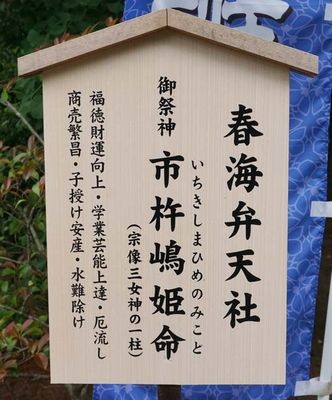 春海弁天社
御祭神 市杵嶋姫命
いちきしまひめのみこと
（宗像三女神の一柱）
福徳財運向上・学業芸能上達・厄流し
商売繁昌・子授け安産・水難除け